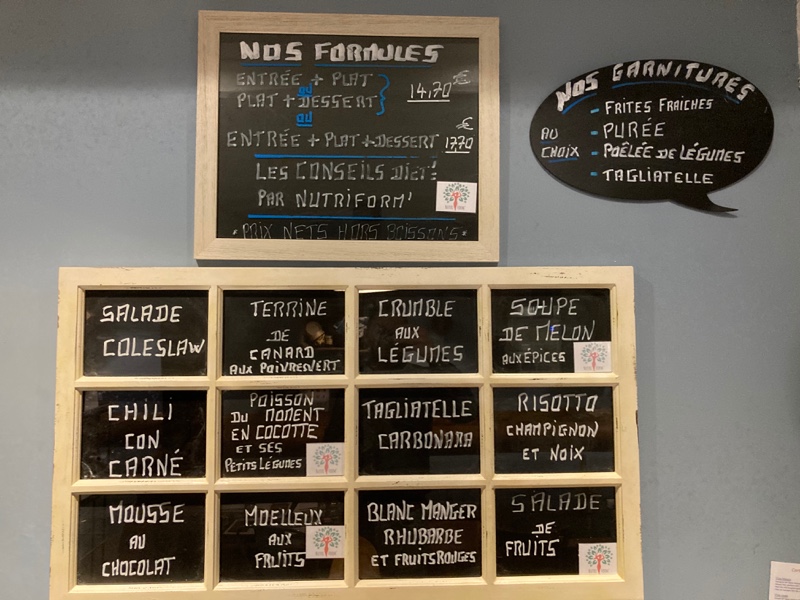 NOS FORMULES
ENTRÉE + PLAT
ou
PLAT + DESSERT
14,70 €
ou
ENTRÉE + PLAT + DESSERT 17,70 €
LES CONSEILS DIET'
PAR NUTRIFORM'
* PRIX NETS HORS BOISSONS *
NOS GARNITURES
AU CHOIX
- FRITES FRAÎCHES
- PURÉE
- POÊLÉE DE LÉGUMES
- TAGLIATELLE
SALADE
COLESLAW
TERRINE
DE
CANARD
AUX POIVRES VERT
CRUMBLE
AUX
LÉGUMES
SOUPE
DE MELON
AUX ÉPICES
CHILI
CON
CARNÉ
POISSON
DU MOMENT
EN COCOTTE
ET SES
PETITS LÉGUMES
TAGLIATELLE
CARBONARA
RISOTTO
CHAMPIGNON
ET NOIX
MOUSSE
AU
CHOCOLAT
MOELLEUX
AUX
FRUITS
BLANC MANGER
RHUBARBE
ET FRUITS ROUGES
SALADE
DE
FRUITS